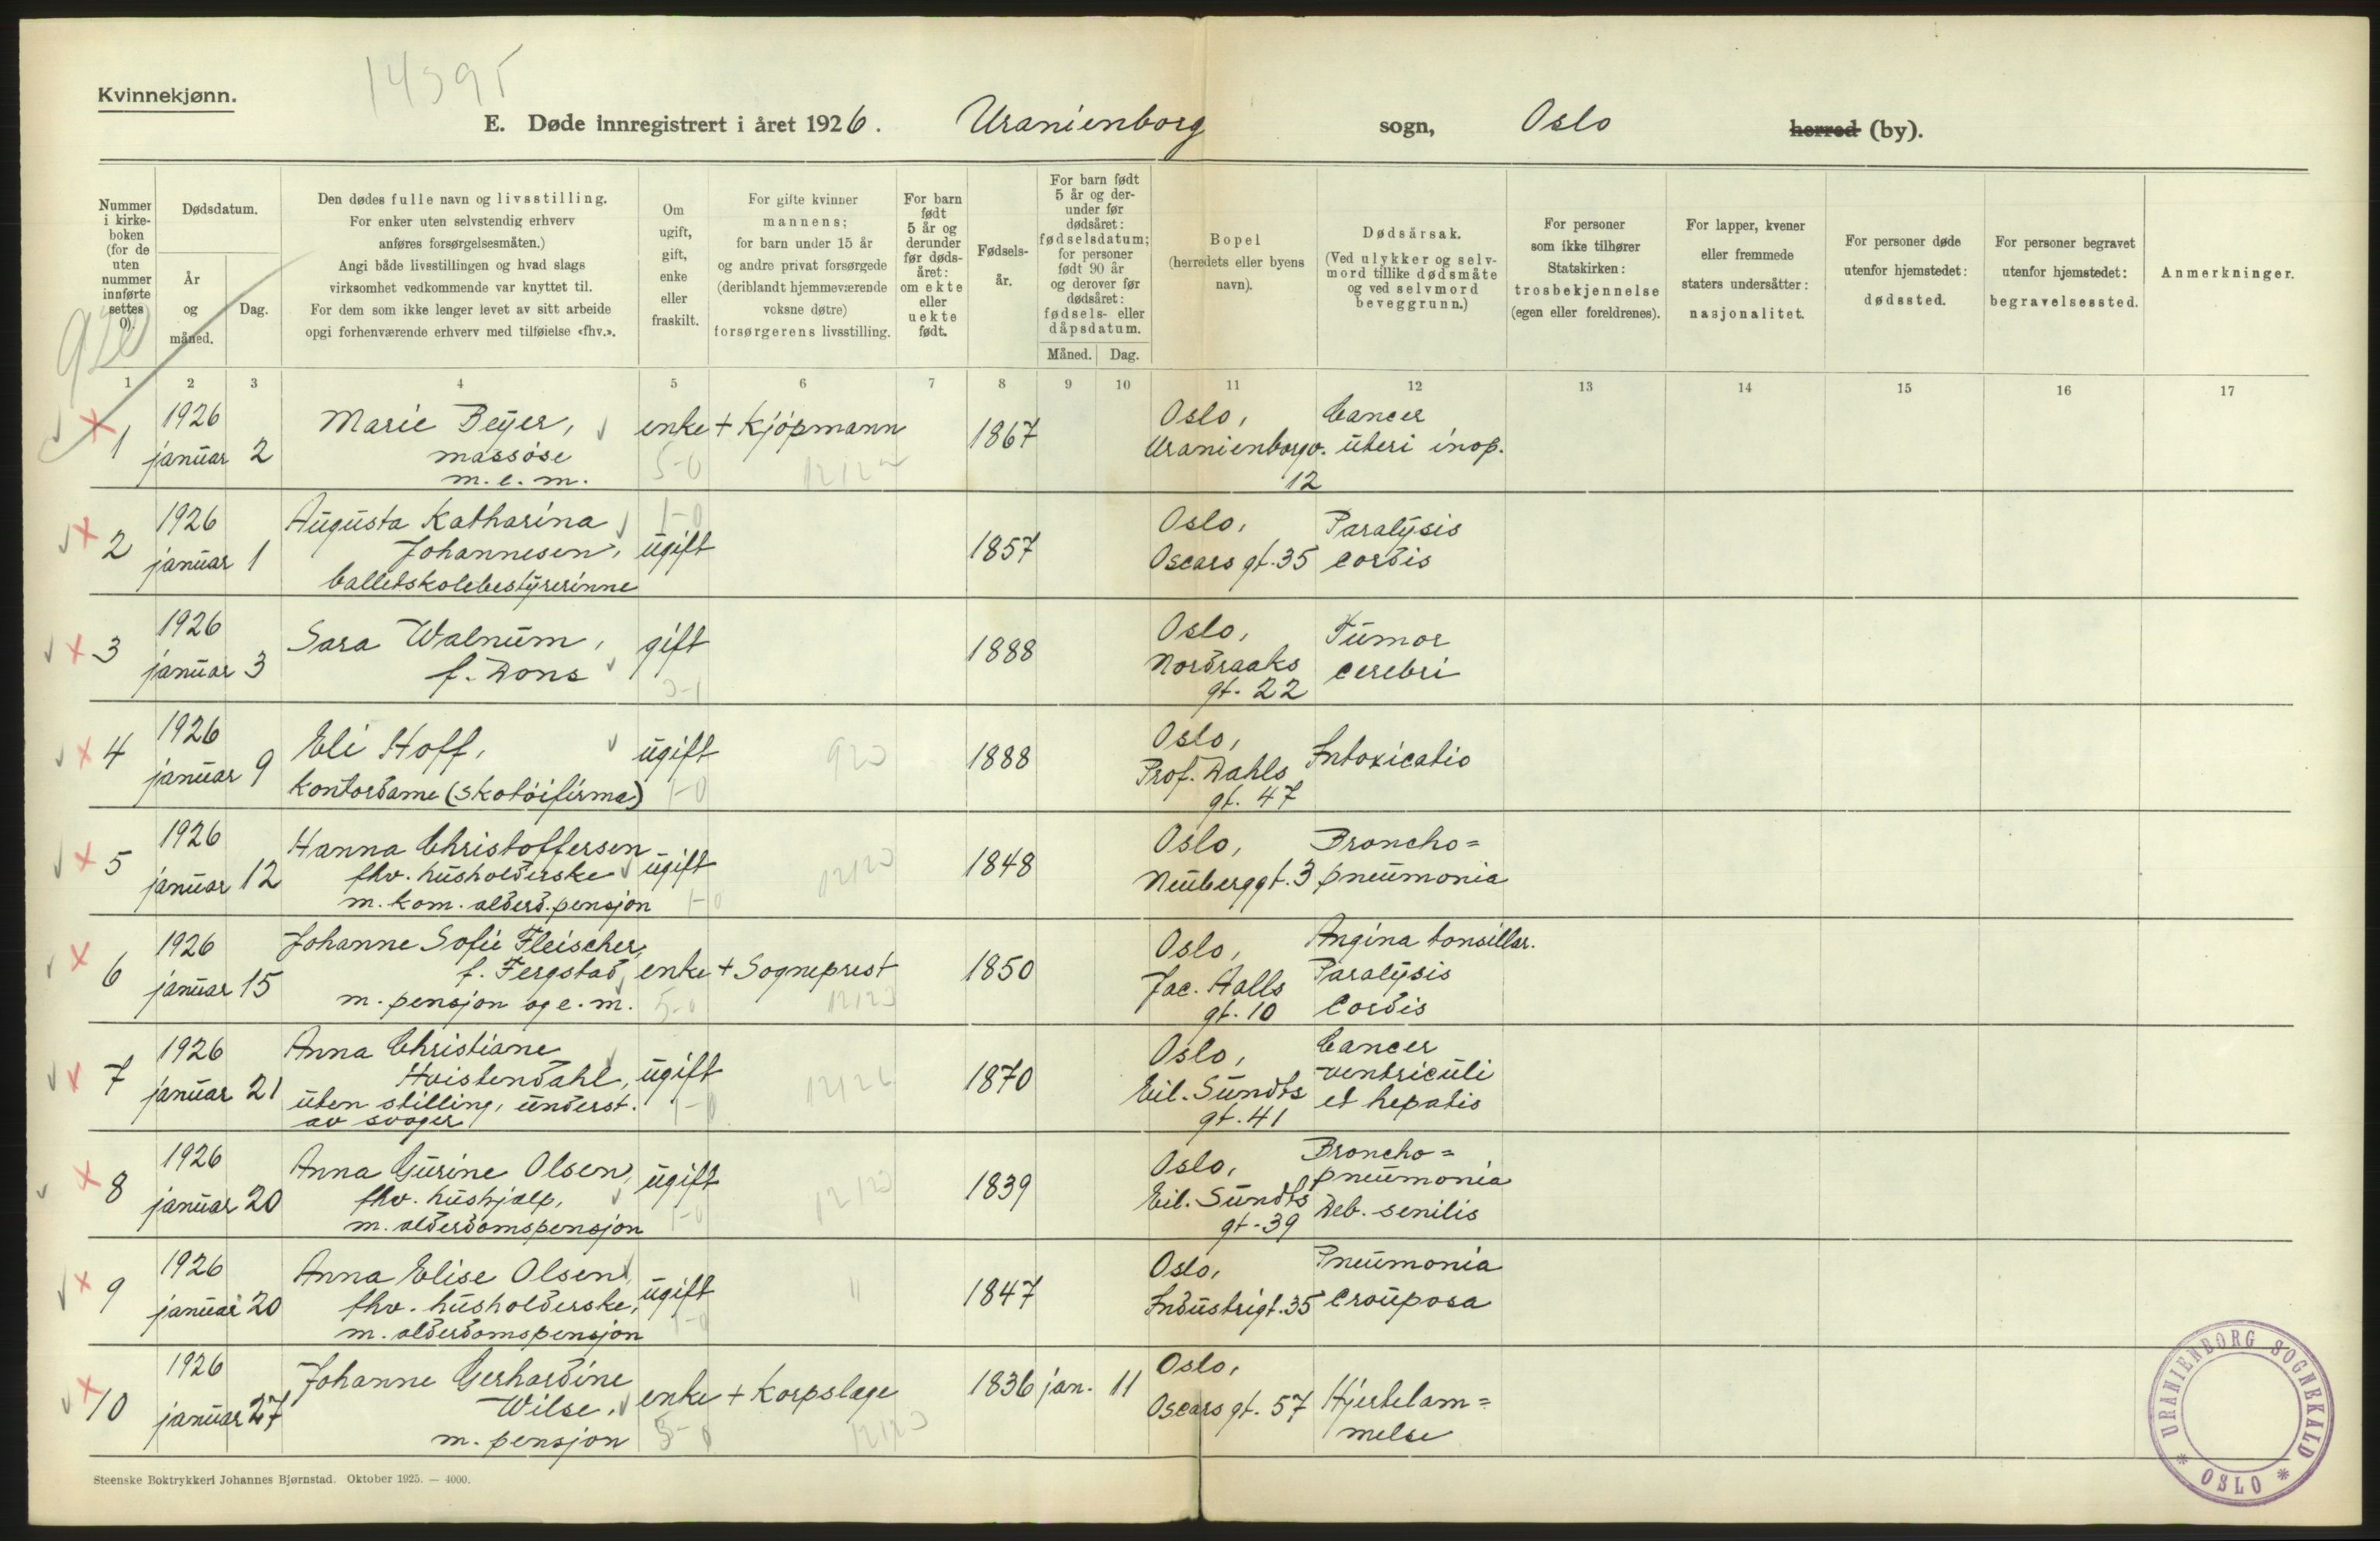 14395
Kvinnekjønn.
E. Døde innregistrert i året 1926. Uranienborg sogn, Oslo herred (by).
Nummer i kirke-boken (for de uten nummer innførte settes 0).
Dødsdatum.
År og måned.
Dag.
Den dødes fulle navn og livsstilling.
For enker uten selvstendig erhverv
anføres forsørgelsesmåten.)
Angi både livsstillingen og hvad slags
virksomhet vedkommende var knyttet til.
For dem som ikke lenger levet av sitt arbeide
opgi forhenværende erhverv med tilføielse «fhv.».
Om
ugift,
gift,
enke
eller
fraskilt.
For gifte kvinner
mannens;
for barn under 15 år
og andre privat forsørgede
(deriblandt hjemmeværende
voksne døtre)
forsørgerens livsstilling.
For barn
født
5 år og
derunder
før døds-
året:
om ekte
eller
uekte
født.
Fødsels-
år.
For barn født
5 år og der-
under før
dødsåret:
fødselsdatum;
for personer
født 90 år
og derover før
dødsåret:
fødsels- eller
dåpsdatum.
Måned. Dag.
Bopel
(herredets eller byens
navn).
Dødsårsak.
(Ved ulykker og selv-
mord tillike dødsmåte
og ved selvmord
beveggrunn.)
For personer
som ikke tilhører
Statskirken:
trosbekjennelse
(egen eller foreldrenes).
For lapper, kvener
eller fremmede
staters undersåtter:
nasjonalitet.
For personer døde
utenfor hjemstedet:
dødssted.
For personer begravet
utenfor hjemstedet:
begravelsessted.
Anmerkninger.
1 2 3 4 5 6 7 8 9 10 11 12 13 14 15 16 17
1926 Oslo, Cancer
1 januar 2 Marie Beyer, enke + Kjöpmann 1867 Uranienborgv. uteri inop.
massöse
m. e. m. 5-0 12
1926 Augusta Katharina 1-0 Oslo, Paralysis
2 januar 1 Johannesen, ugift 1857 Oscars gt. 35 cordis
balletskolebestyrerinne
1926 Oslo, Tumor
3 januar 3 Sara Walnum, gift 1888 Nordraaks cerebri
f. Dons gt. 22
1926 Oslo,
4 januar 9 Eli Hoff, ugift 920 1888 Prof. Dahls Intoxicatio
kontordame (skotöifirma) 1-0 gt. 47
1926 Hanna Christoffersen Oslo, Broncho=
5 januar 12 fhv. husholderske ugift 1848 Neuberggt. 3 pneumonia
m. kom. alderd. pensjon 1-0
1926 Johanne Sofie Fleischer, Oslo, Angina tonsillar.
6 januar 15 f. Fergstad, enke + Sogneprest 1850 Jac. Aalls Paralysis
m. pensjon og e. m. 5-0 gt. 10 Cordis
1926 Anna Christiane Oslo, Cancer
7 januar 21 Hvistendahl, ugift 1870 Eil. Sundts ventriculi
uten stilling, underst. 1-0 gt. 41 et hepatis
av svoger
1926 Anna Gurine Olsen, ugift Oslo, Broncho=
8 januar 20 fhv. hushjælp, 1839 Eil. Sundts pneumonia
m. alderdomspensjon 1-0 gt. 39 Deb. senilis
1926 Anna Elise Olsen, Oslo, Pneumonia
9 januar 20 fhv. husholderske, ugift " 1847 Industrigt. 35 Crouposa
m. alderdomspensjon 1-0
1926 Johanne Gerhardine Oslo,
10 januar 27 Wilse, enke + Korpslæge 1836 jan. 11 Oscars gt. 57 Hjertelam=
m. pensjon 5-0 melse
Steenske Boktrykkeri Johannes Bjørnstad. Oktober 1925. — 4000.
URANIENBORG SOGNEKALD * OSLO *